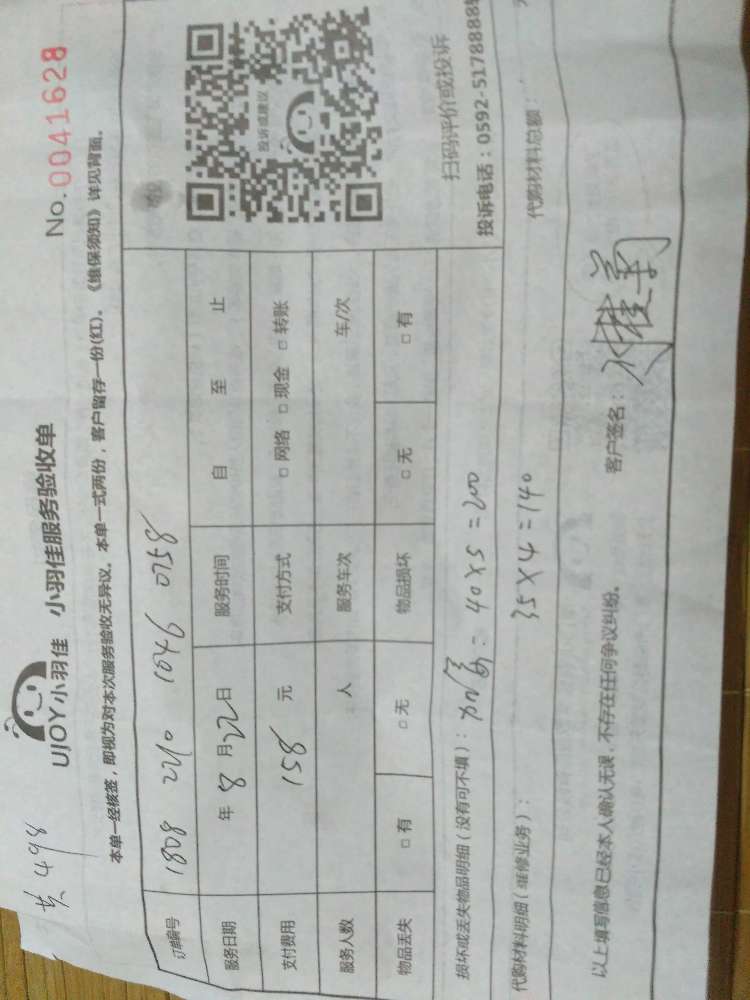 共498
UJOY小羽佳 小羽佳服务验收单 No.0041628
本单一经核签，即视为对本次服务验收无异议。本单一式两份，客户留存一份(红)。《维保须知》详见背面。
订单编号 1808 2210 1046 0758
服务日期 年 8 月 22 日 服务时间 自 至 止
支付费用 158 元 支付方式 □ 网络 □ 现金 □ 转账
服务人数 人 服务车次 车/次
物品丢失 □ 有 □ 无 物品损坏 □ 无 □ 有
投诉或建议
扫码评价或投诉
投诉电话：0592-5178888
损坏或丢失物品明细（没有可不填）： 40×5=200
代购材料明细（维修业务）： 35×4=140 代购材料总额：
以上填写信息已经本人确认无误，不存在任何争议纠纷。 客户签名：